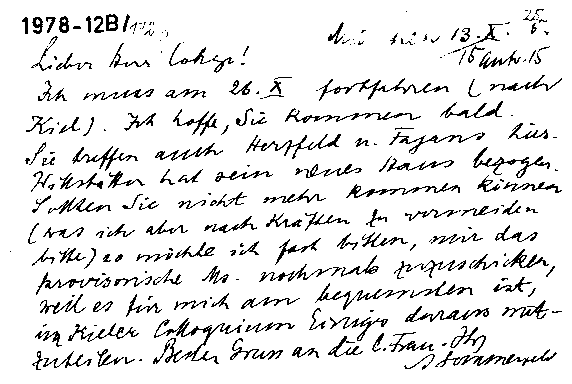 1978-12B/
München 13. X. 25.
Lieber Herr College!
15 Antw. 15
Ich muss am 26. X fortfahren (nach
Kiel). Ich hoffe, Sie kommen bald.
Sie treffen auch Herzfeld u. Fajans hier.
hat sein neues Haus bezogen.
Sollten Sie nicht mehr kommen können
(was ich aber nach Kräften zu vermeiden
bitte) so möchte ich fast bitten, mir das
provisorische Ms. nochmals zuzuschicken,
weil es für mich am bequemsten ist,
im Kieler Colloquium Einiges daraus mit-
zuteilen. Besten Gruss an die l. Frau. Ihr
A Sommerfeld